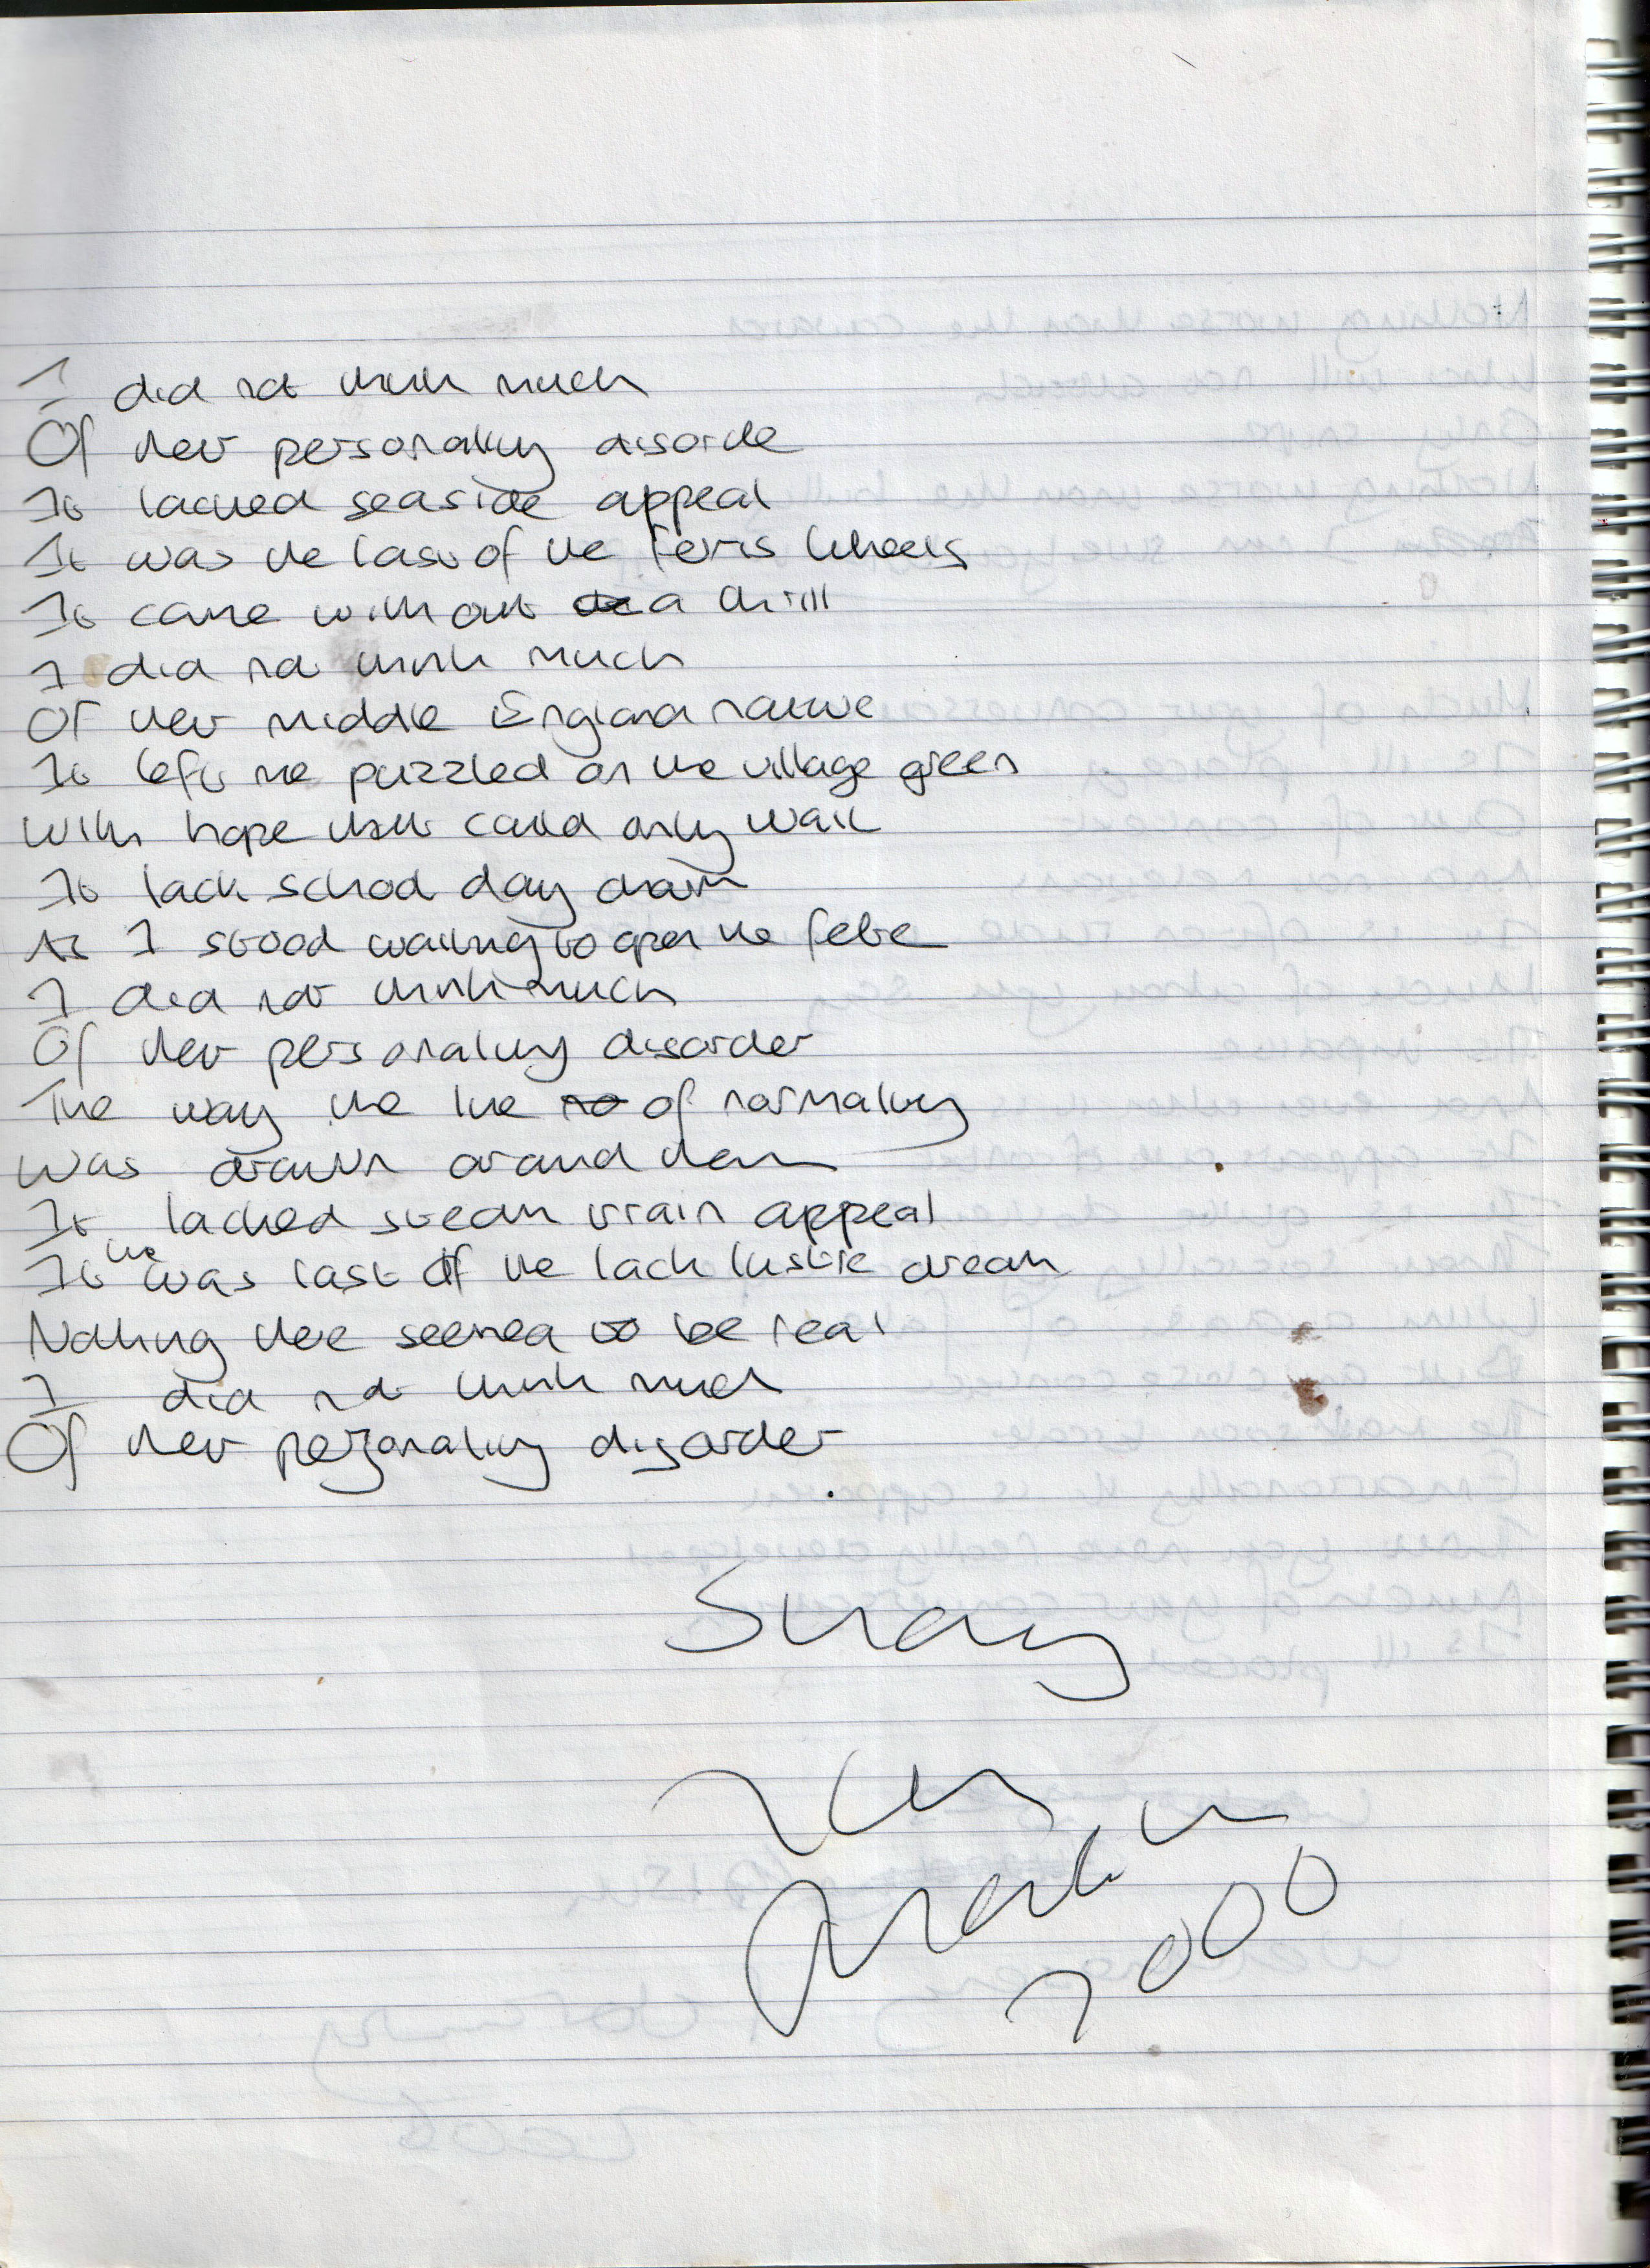 I did not think much
Of their personality disorde
It lacked seaside appeal
It was the last of the ferris wheels
It came with out a thrill
I did not think much
Of their middle England native
It left me puzzled on the village green
With hope that could only wait
It lack school day charm
As I stood waiting to open the fete
I did not think much
Of their personality disorder
The way the line of normality
Was drawn around them
It lacked steam train appeal
It was the last of the lack lustre dream
Nothing there seemed to be real
I did not think much
Of their personality disorder
Sunday
March
2000